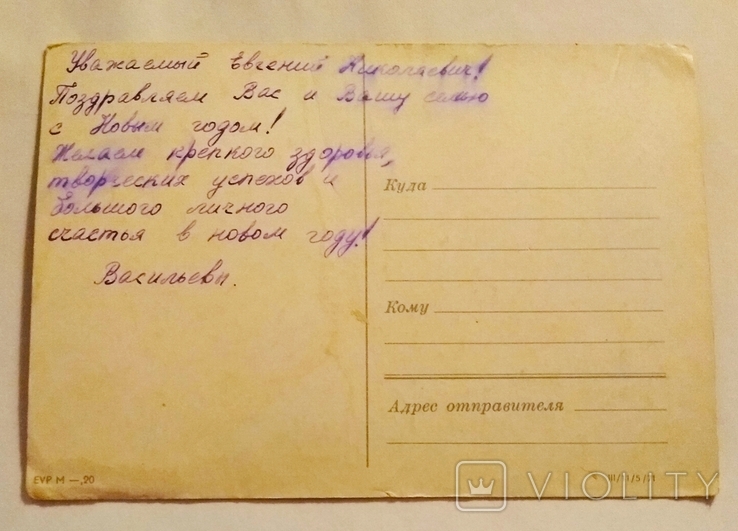 Уважаемый Евгений Николаевич!
Поздравляем Вас и Вашу семью
с Новым годом!
Желаем крепкого здоровья,
творческих успехов и
большого личного
счастья в новом году!
Васильевы.
Куда
Кому
Адрес отправителя
EVP M —,20
III/11/5/21
VIOLITY